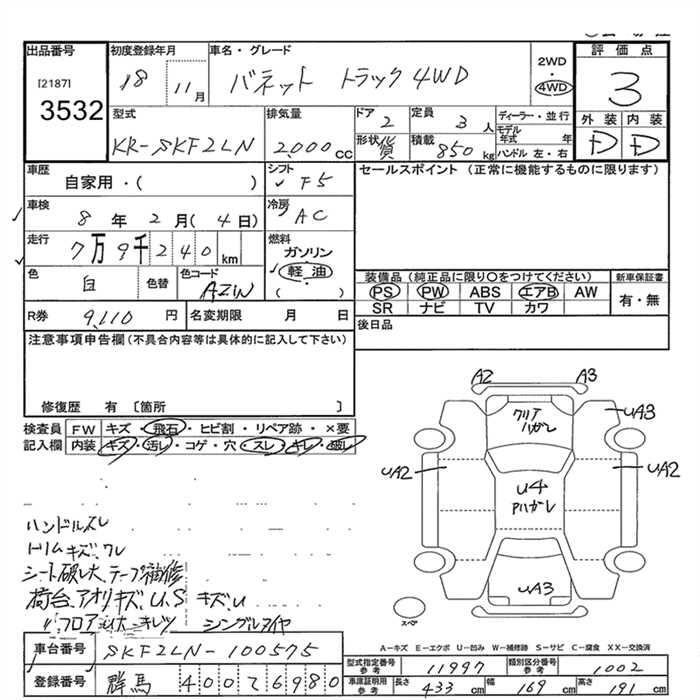 出品番号 初度登録年月 車名・グレード 2WD・4WD 評価点
[2187] 18 11月 バネット トラック 4WD 3
3532
型式 排気量 ドア 2 定員 3人 ディーラー・並行 外装 内装
KR-SKF2LN 2,000cc 形状 貨 積載 850kg モデル年式 年 D D
ハンドル 左・右
車歴 シフト セールスポイント (正常に機能するものに限ります)
自家用・( ) F5
車検 冷房
8年 2月(4日) AC
走行 燃料
7万9千240km ガソリン
軽油
( )
色 白 色替 色コード AZIW
装備品 (純正品に限り○をつけてください) 新車保証書
PS PW ABS エアB AW 有・無
SR ナビ TV カワ
R券 9,110円 名変期限 月 日 後日品
注意事項申告欄(不具合内容等は具体的に記入して下さい)
修復歴 有 〔箇所 〕
検査員 FW キズ・飛石・ヒビ割・リペア跡・×要
記入欄 内装 キズ・汚レ・コゲ・穴・スレ・キレ・破レ
A2 A3
クリア ハガレ
UA3
UA2 UA2
U4
Pハガレ
UA3
スペア
ハンドルスレ
トリムキズ、ワレ
シート破レ大、テープ補修
荷台、アオリキズ U、S キズU
〃 フロアシハ大ニキレツ シングルタイヤ
A-キズ E-エクボ U-凹み W-補修跡 S-サビ C-腐食 XX-交換済
車台番号 SKF2LN-100575
型式指定番号 参考 11997 類別区分番号 参考 1002
登録番号 群馬 400 そ 6980
車庫証明用 参考 長さ 433cm 幅 169cm 高さ 191cm